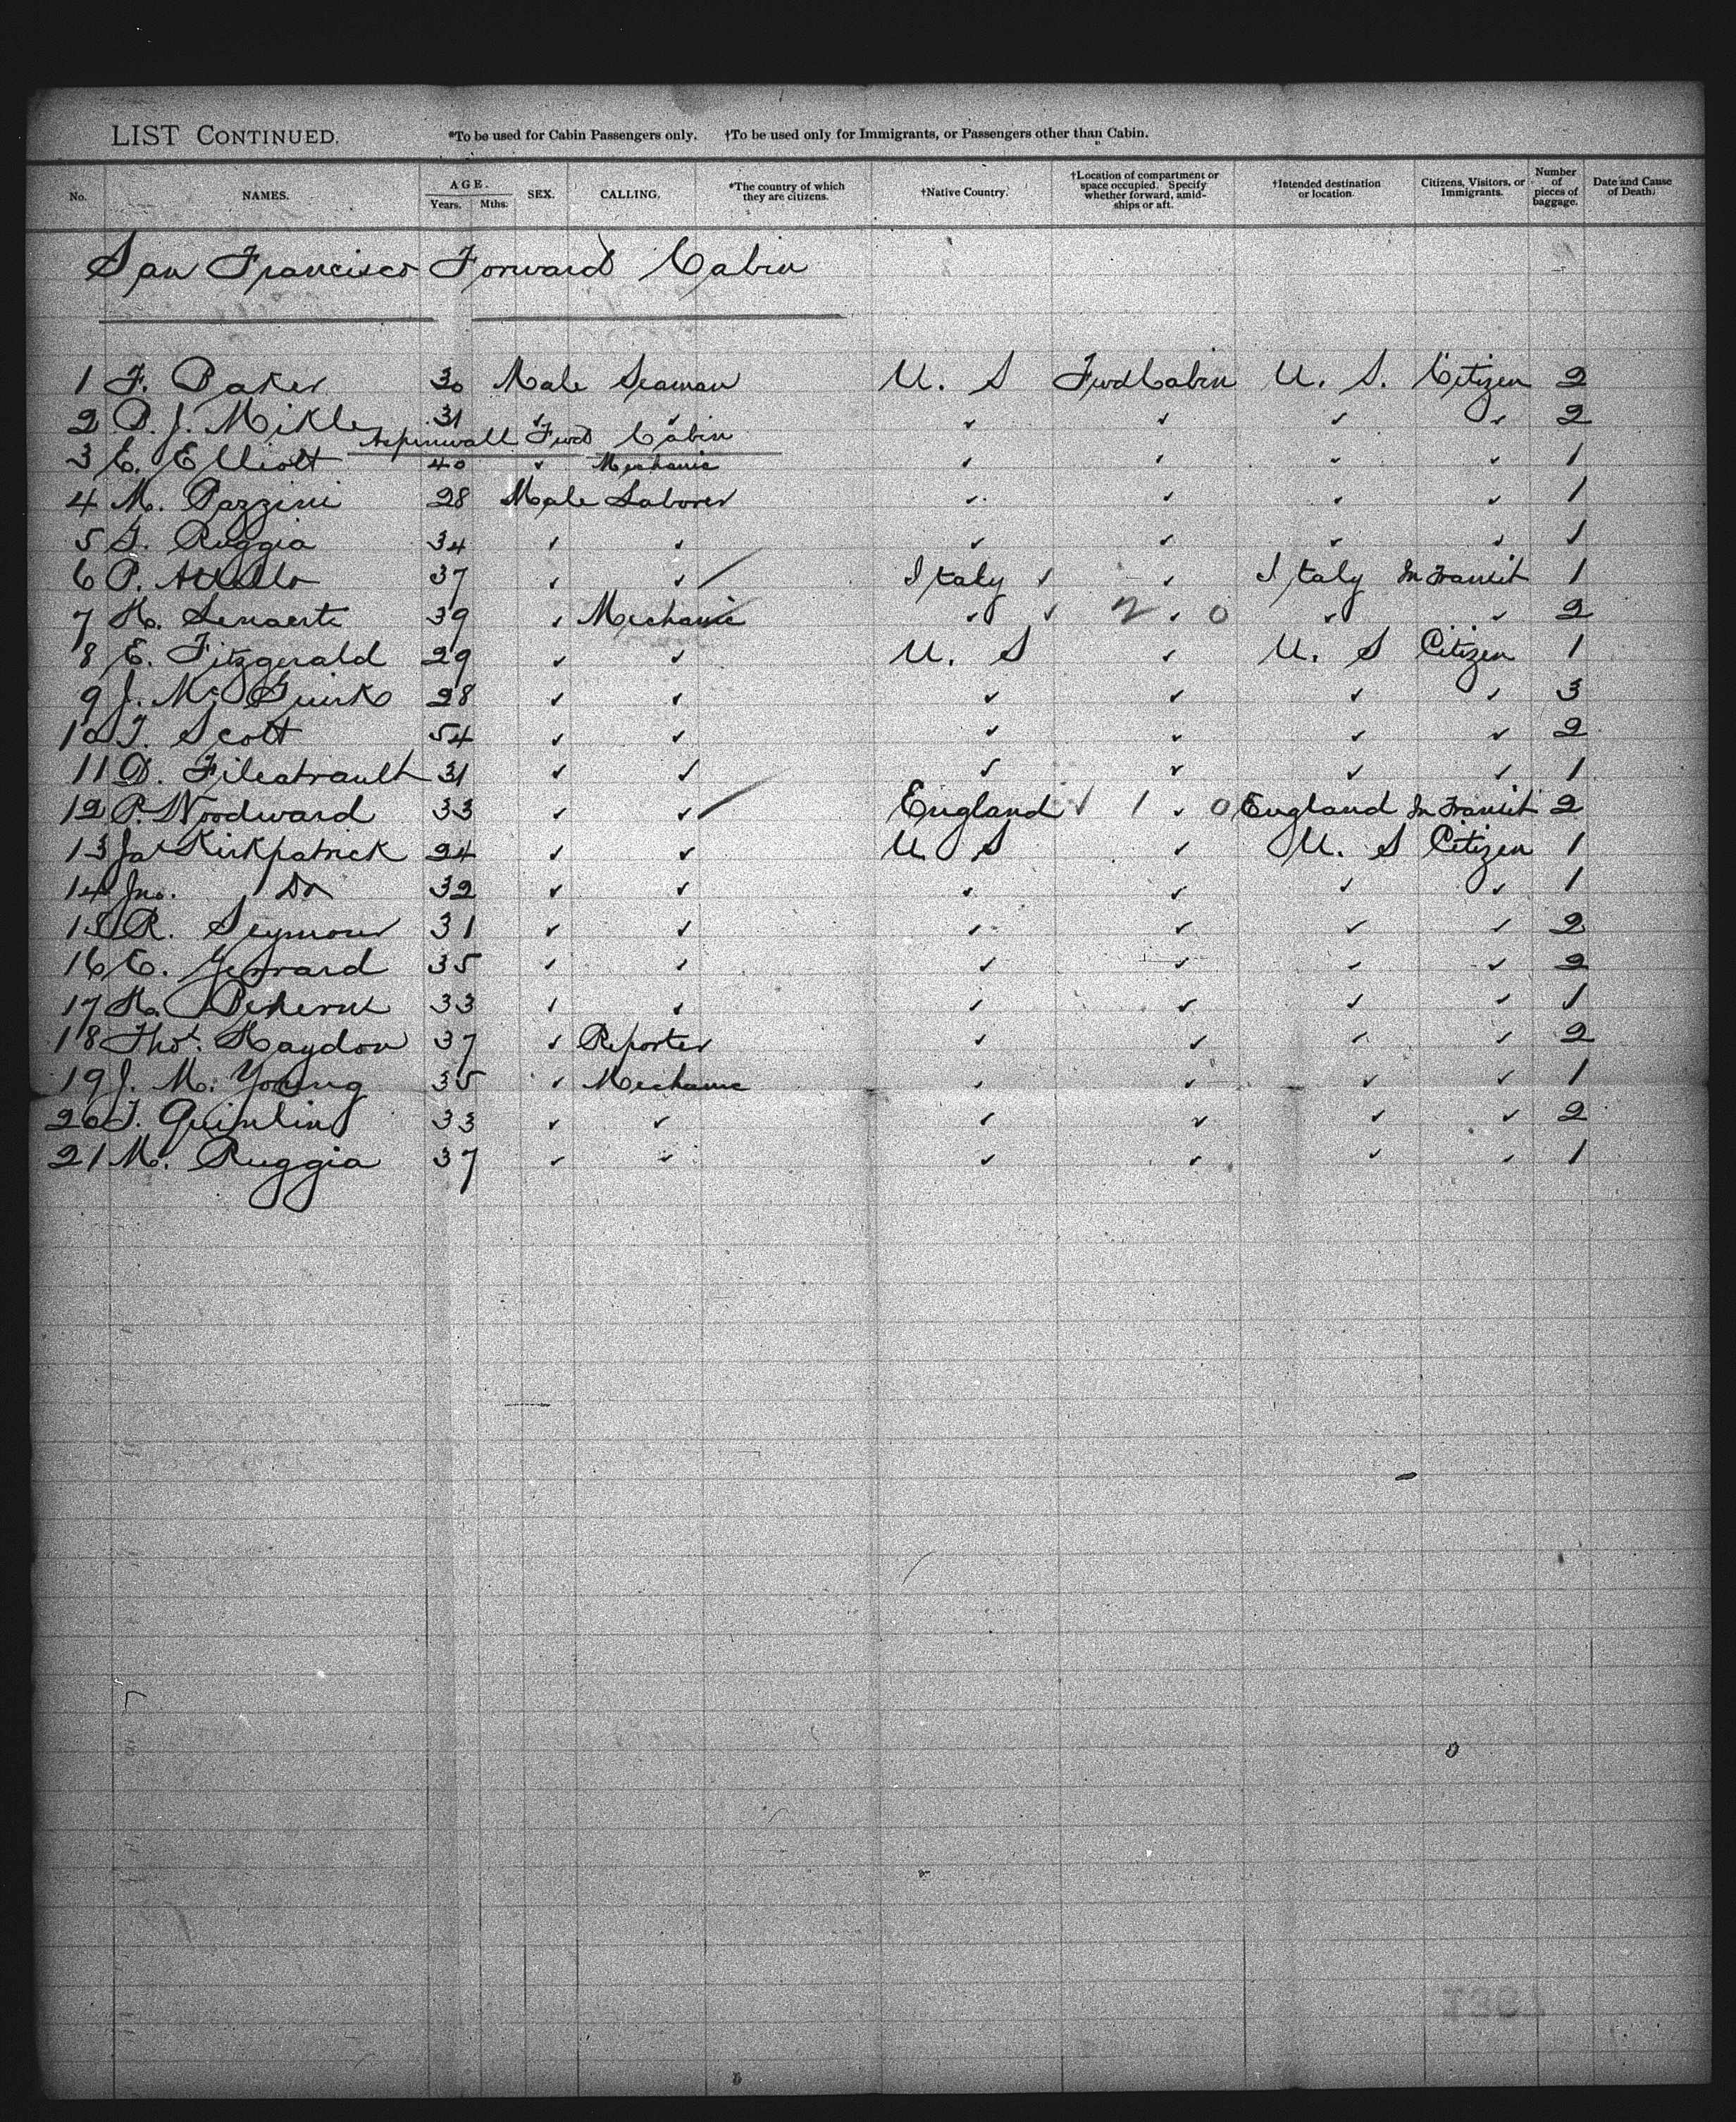 LIST CONTINUED. *To be used for Cabin Passengers only. †To be used only for Immigrants, or Passengers other than Cabin.
No. NAMES. AGE. Years. Mths. SEX. CALLING. *The country of which they are citizens. †Native Country. †Location of compartment or space occupied. Specify whether forward, amidships or aft. †Intended destination or location. Citizens, Visitors, or Immigrants. Number of pieces of baggage. Date and Cause of Death.
San Francisco Forward Cabin
1 F. Baker 30 Male Seaman U. S Fwd Cabin U. S. Citizen 2
2 P. J. Mikle 31 ✓ ✓ ✓ ✓ ✓ ✓ 2
Aspinwall Fwd Cabin
3 E. Elliott 40 ✓ Mechanic ✓ ✓ ✓ ✓ 1
4 M. Pazzini 28 Male Laborer ✓ ✓ ✓ ✓ 1
5 Ruggia 34 ✓ ✓ ✓ ✓ ✓ ✓ 1
6 P. 37 ✓ ✓ Italy ✓ ✓ Italy In Transit 1
7 H. 39 ✓ Mechanic ✓ ✓ 2 ✓ 0 ✓ ✓ 2
8 E. Fitzgerald 29 ✓ ✓ U. S ✓ U. S Citizen 1
9 J. Mc Guirk 28 ✓ ✓ ✓ ✓ ✓ ✓ 3
10 T. Scott 54 ✓ ✓ ✓ ✓ ✓ ✓ 2
11 D. Fileatrault 31 ✓ ✓ ✓ ✓ ✓ ✓ 1
12 P. Woodward 33 ✓ ✓ England ✓ 1 ✓ 0 England In Transit 2
13 Jas Kirkpatrick 24 ✓ ✓ U S ✓ U. S Citizen 1
14 Jno. Do 32 ✓ ✓ ✓ ✓ ✓ ✓ 1
15 R. Seymour 31 ✓ ✓ ✓ ✓ ✓ ✓ 2
16 E. Gerrard 35 ✓ ✓ ✓ ✓ ✓ ✓ 2
17 H. 33 ✓ ✓ ✓ ✓ ✓ ✓ 1
18 Thos. Haydon 37 ✓ Reporter ✓ ✓ ✓ ✓ 2
19 J. M. Young 35 ✓ Mechanic ✓ ✓ ✓ ✓ 1
20 T. Quinlin 33 ✓ ✓ ✓ ✓ ✓ ✓ 2
21 M. Ruggia 37 ✓ ✓ ✓ ✓ ✓ ✓ 1